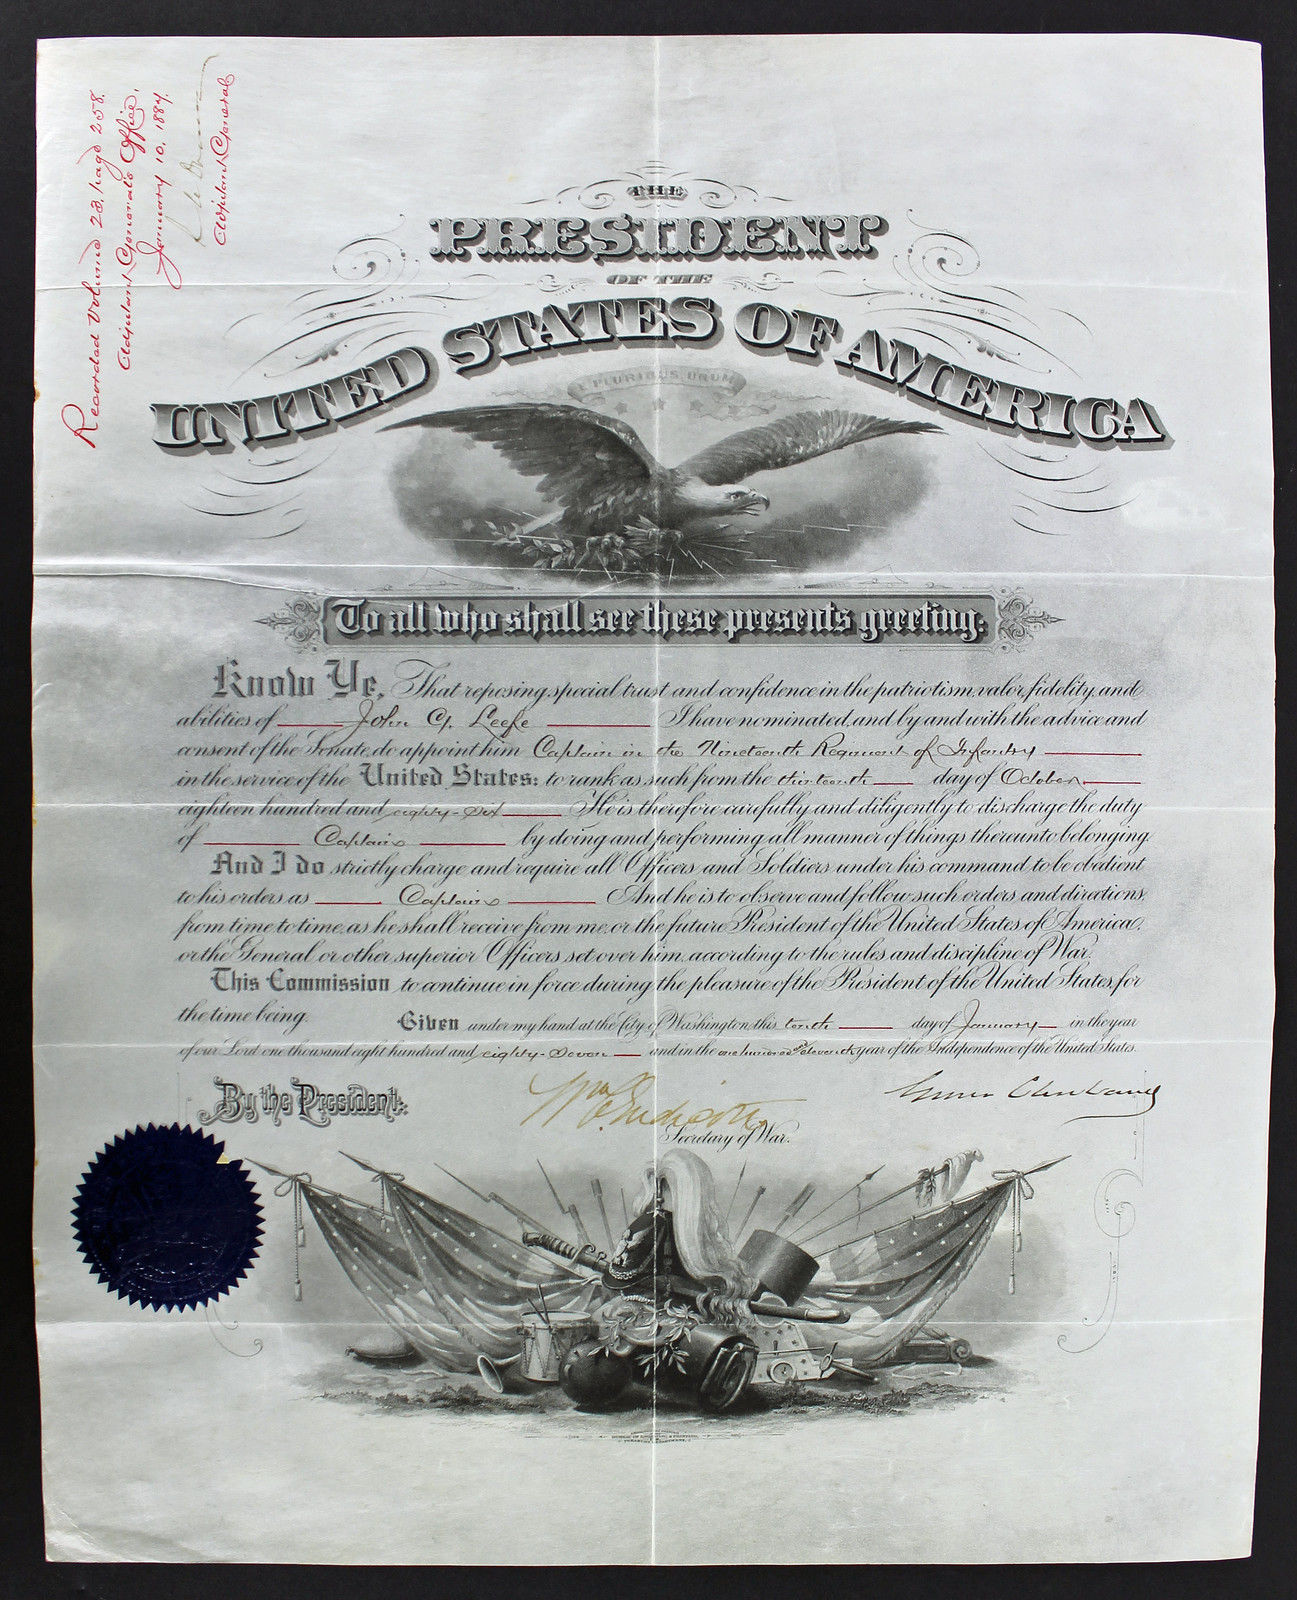 Recorded Volume 23, page 258.
Adjutant General's Office,
January 10, 1887.
Adjutant General
THE
PRESIDENT
OF THE
UNITED STATES OF AMERICA
E PLURIBUS UNUM
To all who shall see these presents greeting:
Know Ye, That reposing special trust and confidence in the patriotism, valor, fidelity, and
abilities of John G. Leefe I have nominated, and by and with the advice and
consent of the Senate, do appoint him Captain in the Nineteenth Regiment of Infantry
in the service of the United States: to rank as such from the thirteenth day of October
eighteen hundred and eighty-six He is therefore carefully and diligently to discharge the duty
of Captain by doing and performing all manner of things thereunto belonging.
And I do strictly charge and require all Officers and Soldiers under his command to be obedient
to his orders as Captain And he is to observe and follow such orders and directions,
from time to time, as he shall receive from me, or the future President of the United States of America,
or the General or other superior Officers set over him, according to the rules and discipline of War.
This Commission to continue in force during the pleasure of the President of the United States, for
the time being.
Given under my hand at the City of Washington this tenth day of January in the year
of our Lord one thousand eight hundred and eighty-seven and in the one hundred & eleventh year of the Independence of the United States.
By the President:
Wm C. Endicott
Grover Cleveland
Secretary of War.